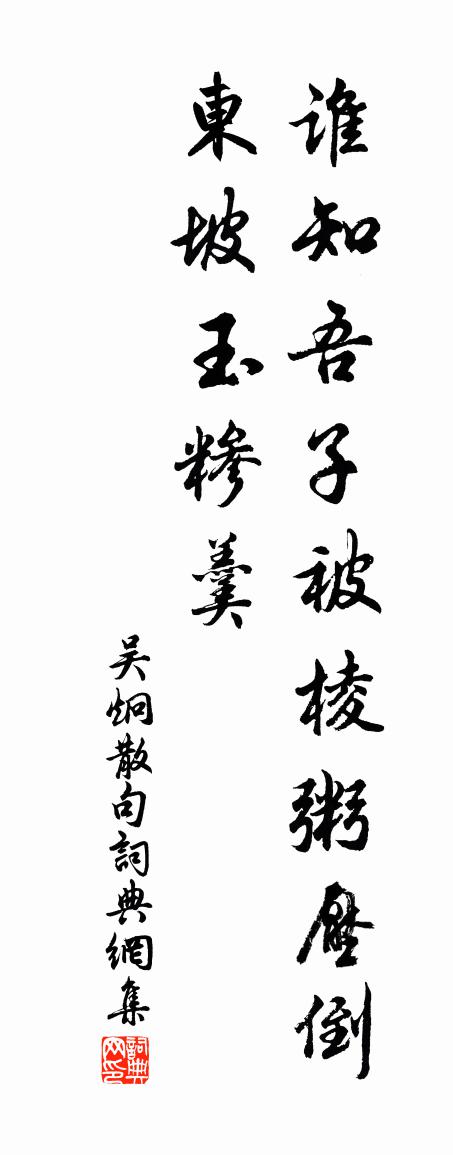 誰知吾子被棱粥壓倒
東坡玉糝羹
吴炯散句詞典網集
詞典网印